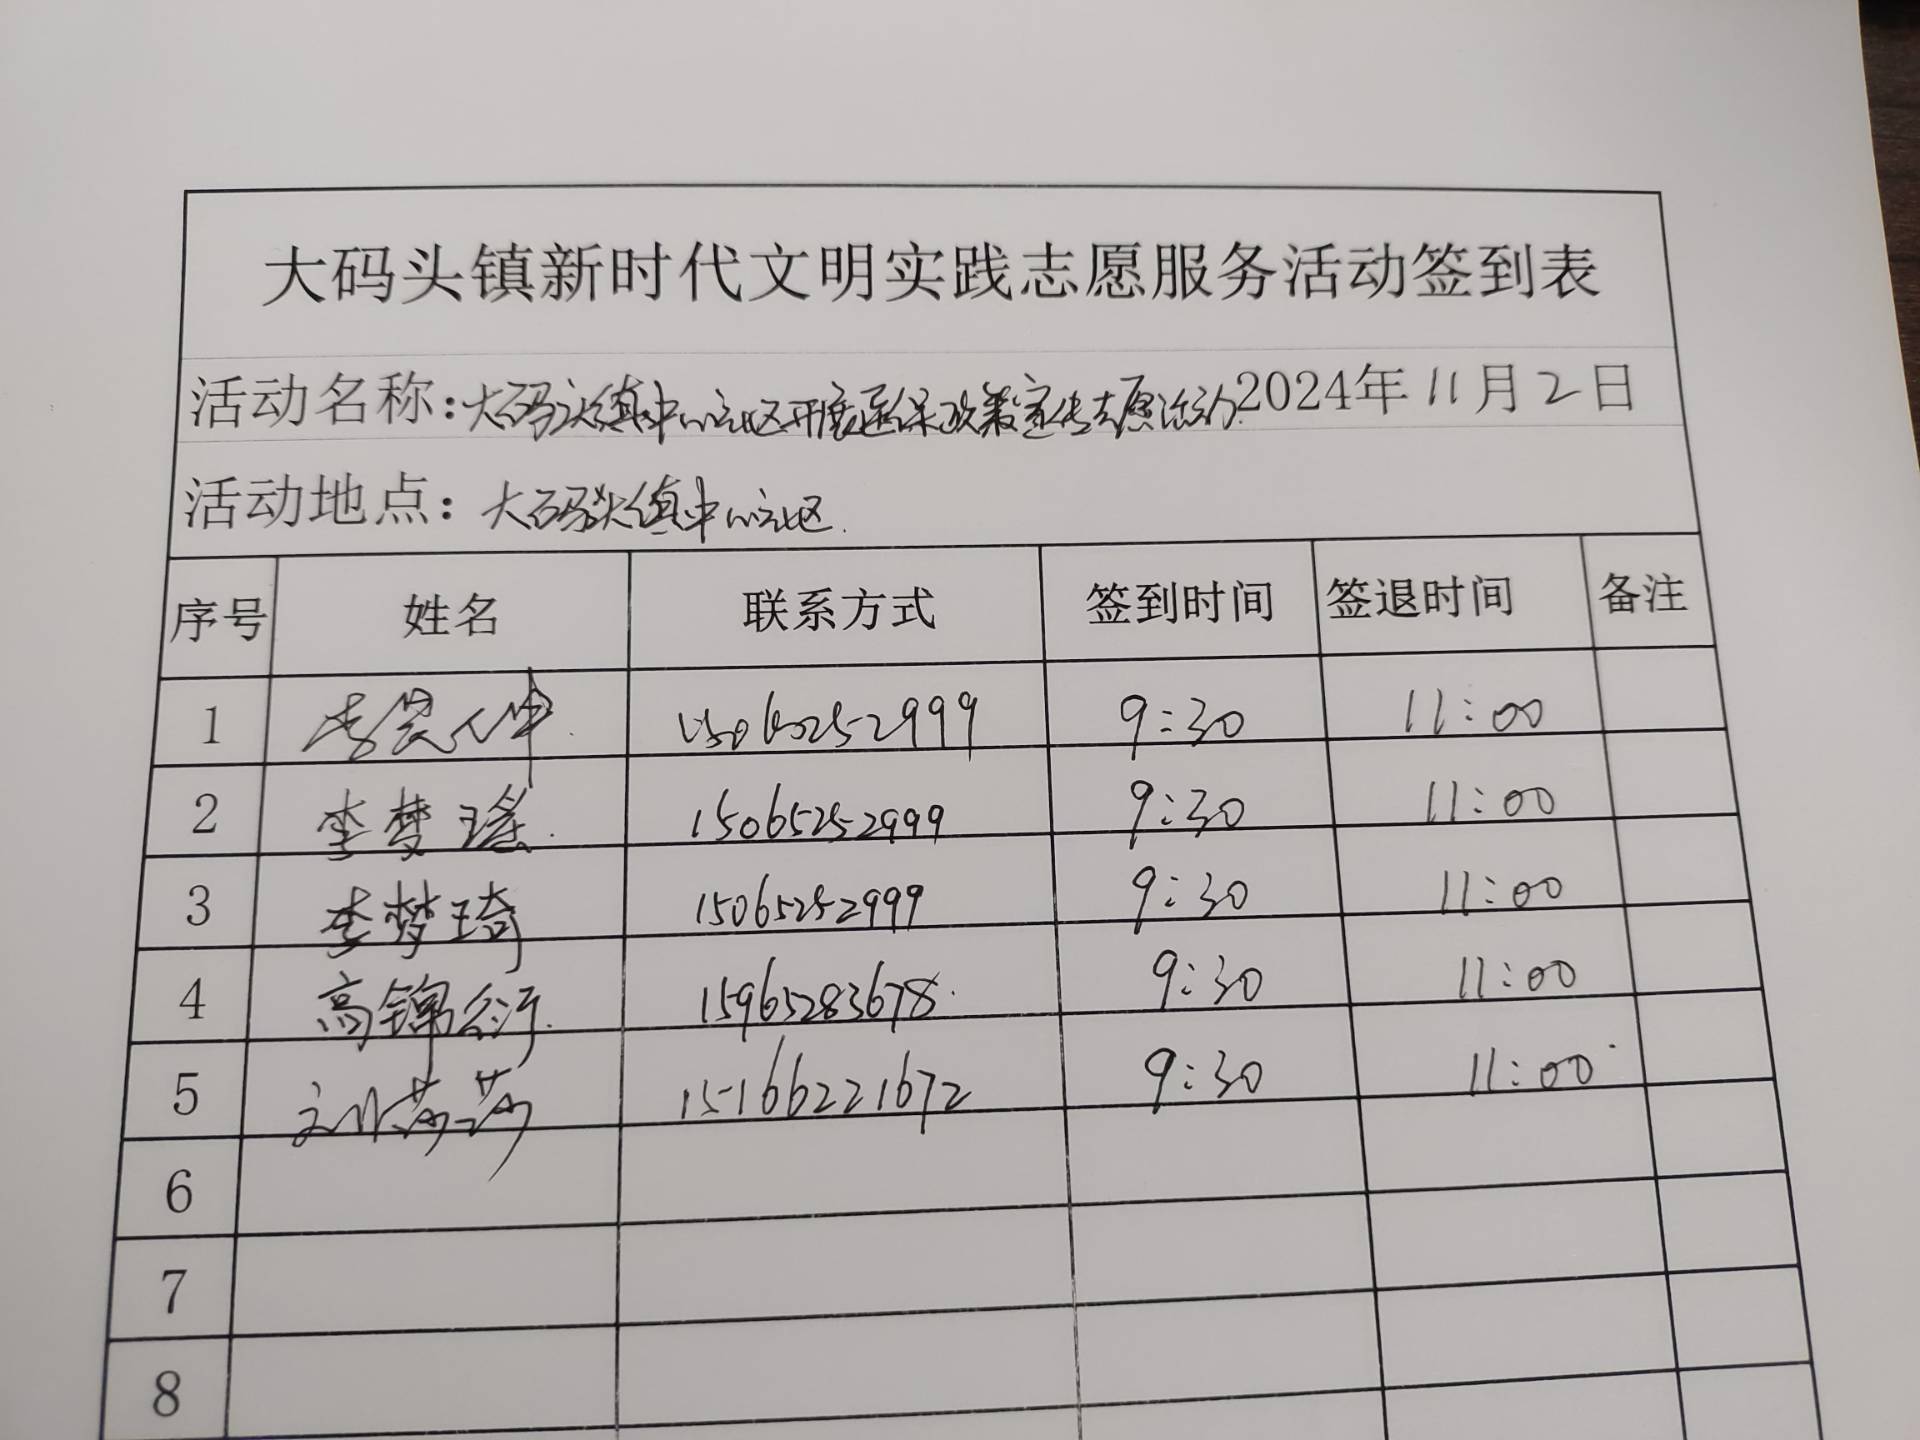 大码头镇新时代文明实践志愿服务活动签到表
活动名称:大码头镇中心社区开展医保政策宣传志愿活动 2024年11月2日
活动地点:大码头镇中心社区
序号 姓名 联系方式 签到时间 签退时间 备注
1 李 15065252999 9:30 11:00
2 李梦瑶 15065252999 9:30 11:00
3 李梦琦 15065252999 9:30 11:00
4 高锦衍 15965283678 9:30 11:00
5 刘莎莎 15166221672 9:30 11:00
6
7
8